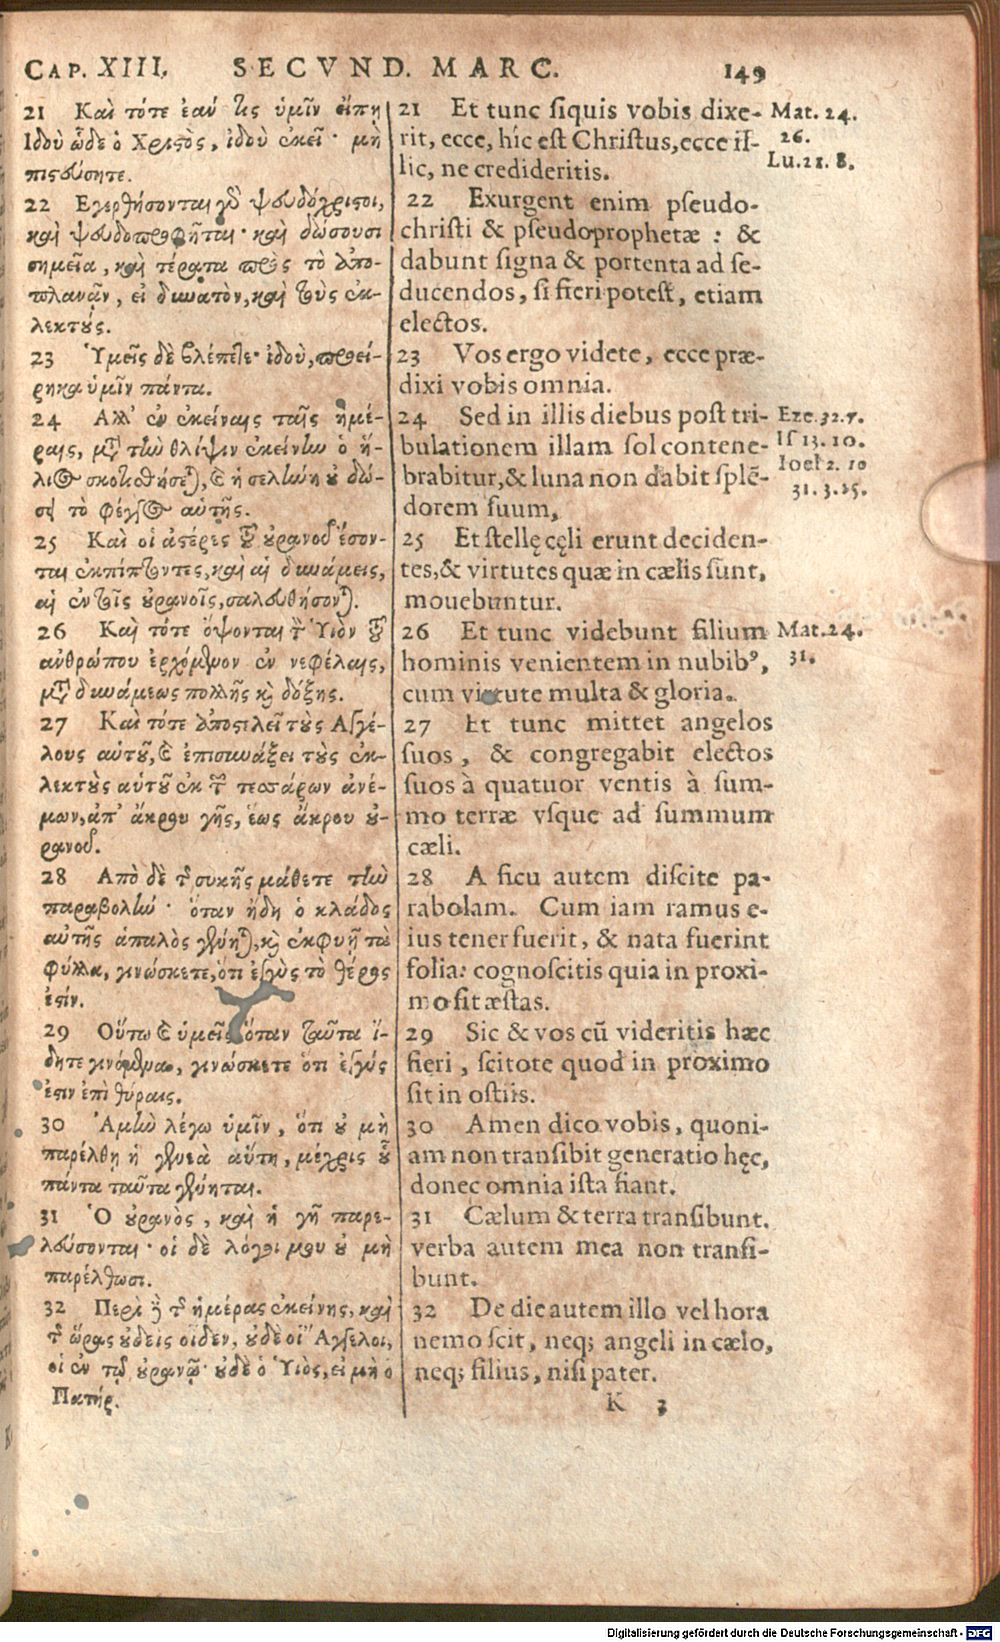 CAP. XIII. SECVND. MARC. 149
21 Καὶ τότε ἐάν τις ὑμῖν εἴπῃ
Ιδοὺ ὧδε ὁ Χριστὸς, ἰδοὺ ἐκεῖ· μὴ
πιστεύσητε.
22 Εγερθήσονται γὸ ψευδόχριστοι,
καὶ ψευδοπροφῆται· καὶ δώσουσι
σημεῖα, καὶ τέρατα πρὸς τὸ ἀπο-
πλανᾷν, εἰ δυνατὸν, καὶ τοὺς ἐκ-
λεκτούς.
23 Ὑμεῖς δὲ βλέπετε· ἰδοὺ, προεί-
ρηκα ὑμῖν πάντα.
24 Αλλ' ἐν ἐκείναις ταῖς ἡμέ-
ραις, μτ τὴν θλίψιν ἐκείνην ὁ ἥ-
λιος σκοτισθήσετ), καὶ ἡ σελήνη οὐ δώ-
σει τὸ φέγγος αὐτῆς.
25 Καὶ οἱ ἀστέρες τοῦ οὐρανοῦ ἔσον-
ται ἐκπίπτοντες, καὶ αἱ δυνάμεις,
αἱ ἐν τοῖς οὐρανοῖς, σαλευθήσοντ).
26 Καὶ τότε ὄψονται τὸν Ὑιὸν τοῦ
ἀνθρώπου ἐρχόμενον ἐν νεφέλαις,
μτ δυνάμεως πολλῆς καὶ δόξης.
27 Καὶ τότε ἀποστελεῖ τοὺς Αγγέ-
λους αὑτοῦ, καὶ ἐπισυνάξει τοὺς ἐκ-
λεκτοὺς αὑτοῦ ἐκ τῶν τεσσάρων ἀνέ-
μων, ἀπ' ἄκρου γῆς, ἕως ἄκρου οὐ-
ρανοῦ.
28 Απὸ δὲ τῆς συκῆς μάθετε τὴν
παραβολήν· ὅταν ἤδη ὁ κλάδος
αὐτῆς ἁπαλὸς γένητ), καὶ ἐκφυῇ τὰ
φύλλα, γινώσκετε, ὅτι ἐγγὺς τὸ θέρος
ἐστίν.
29 Οὕτω καὶ ὑμεῖς ὅταν ταῦτα ἴ-
δητε γινόμενα, γινώσκετε ὅτι ἐγγύς
ἐστιν ἐπὶ θύραις.
30 Ἀμὴν λέγω ὑμῖν, ὅτι οὐ μὴ
παρέλθῃ ἡ γενεὰ αὕτη, μέχρις οὗ
πάντα ταῦτα γένηται.
31 Ὁ οὐρανὸς, καὶ ἡ γῆ παρε-
λεύσονται· οἱ δὲ λόγοι μου οὐ μὴ
παρέλθωσι.
32 Περὶ δὲ τῆς ἡμέρας ἐκείνης, καὶ
τῆς ὥρας οὐδεὶς οἶδεν, οὐδὲ οἱ Ἄγγελοι,
οἱ ἐν τῷ οὐρανῷ· οὐδὲ ὁ Ὑιὸς, εἰ μὴ ὁ
Πατήρ.
21 Et tunc siquis vobis dixe-
rit, ecce, híc est Christus, ecce il-
lic, ne credideritis.
22 Exurgent enim pseudo-
christi & pseudoprophetæ : &
dabunt signa & portenta ad se-
ducendos, si fieri potest, etiam
electos.
23 Vos ergo videte, ecce præ-
dixi vobis omnia.
24 Sed in illis diebus post tri-
bulationem illam sol contene-
brabitur, & luna non dabit splē-
dorem suum,
25 Et stellę cęli erunt deciden-
tes, & virtutes quæ in cælis sunt,
mouebuntur.
26 Et tunc videbunt filium
hominis venientem in nubibꝰ,
cum virtute multa & gloria.
27 Et tunc mittet angelos
suos, & congregabit electos
suos à quatuor ventis à sum-
mo terræ vsque ad summum
cæli.
28 A ficu autem discite pa-
rabolam. Cum iam ramus e-
ius tener fuerit, & nata fuerint
folia: cognoscitis quia in proxi-
mo sit æstas.
29 Sic & vos cū videritis hæc
fieri, scitote quod in proximo
sit in ostiis.
30 Amen dico vobis, quoni-
am non transibit generatio hęc,
donec omnia ista fiant.
31 Cælum & terra transibunt,
verba autem mea non transi-
bunt.
32 De die autem illo vel hora
nemo scit, neq; angeli in cælo,
neq; filius, nisi pater.
K 3
Mat. 24.
26.
Lu. 21. 8.
Eze. 32. 7.
Is 13. 10.
Ioel 2. 10
31. 3. 15.
Mat. 24.
31.
Digitalisierung gefördert durch die Deutsche Forschungsgemeinschaft - DFG